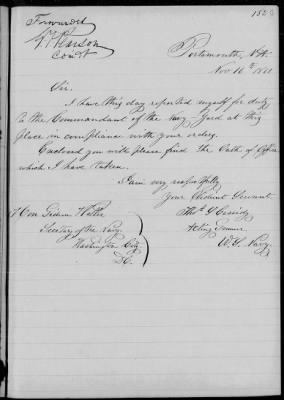 Forwarded
G. F. Pearson
Comdt
152
Portsmouth, N.H.
Nov 16th 1861
Sir.
I have this day reported myself for duty
to the Commandant of the Navy-Yard at this
place in compliance with your orders.
Enclosed you will please find the Oath of Office
which I have taken.
I am very respectfully
Your Obedient Servant
Hon Gideon Welles
Secretary of the Navy
Washington City
D.C.
Acting Gunner
U.S. Navy.